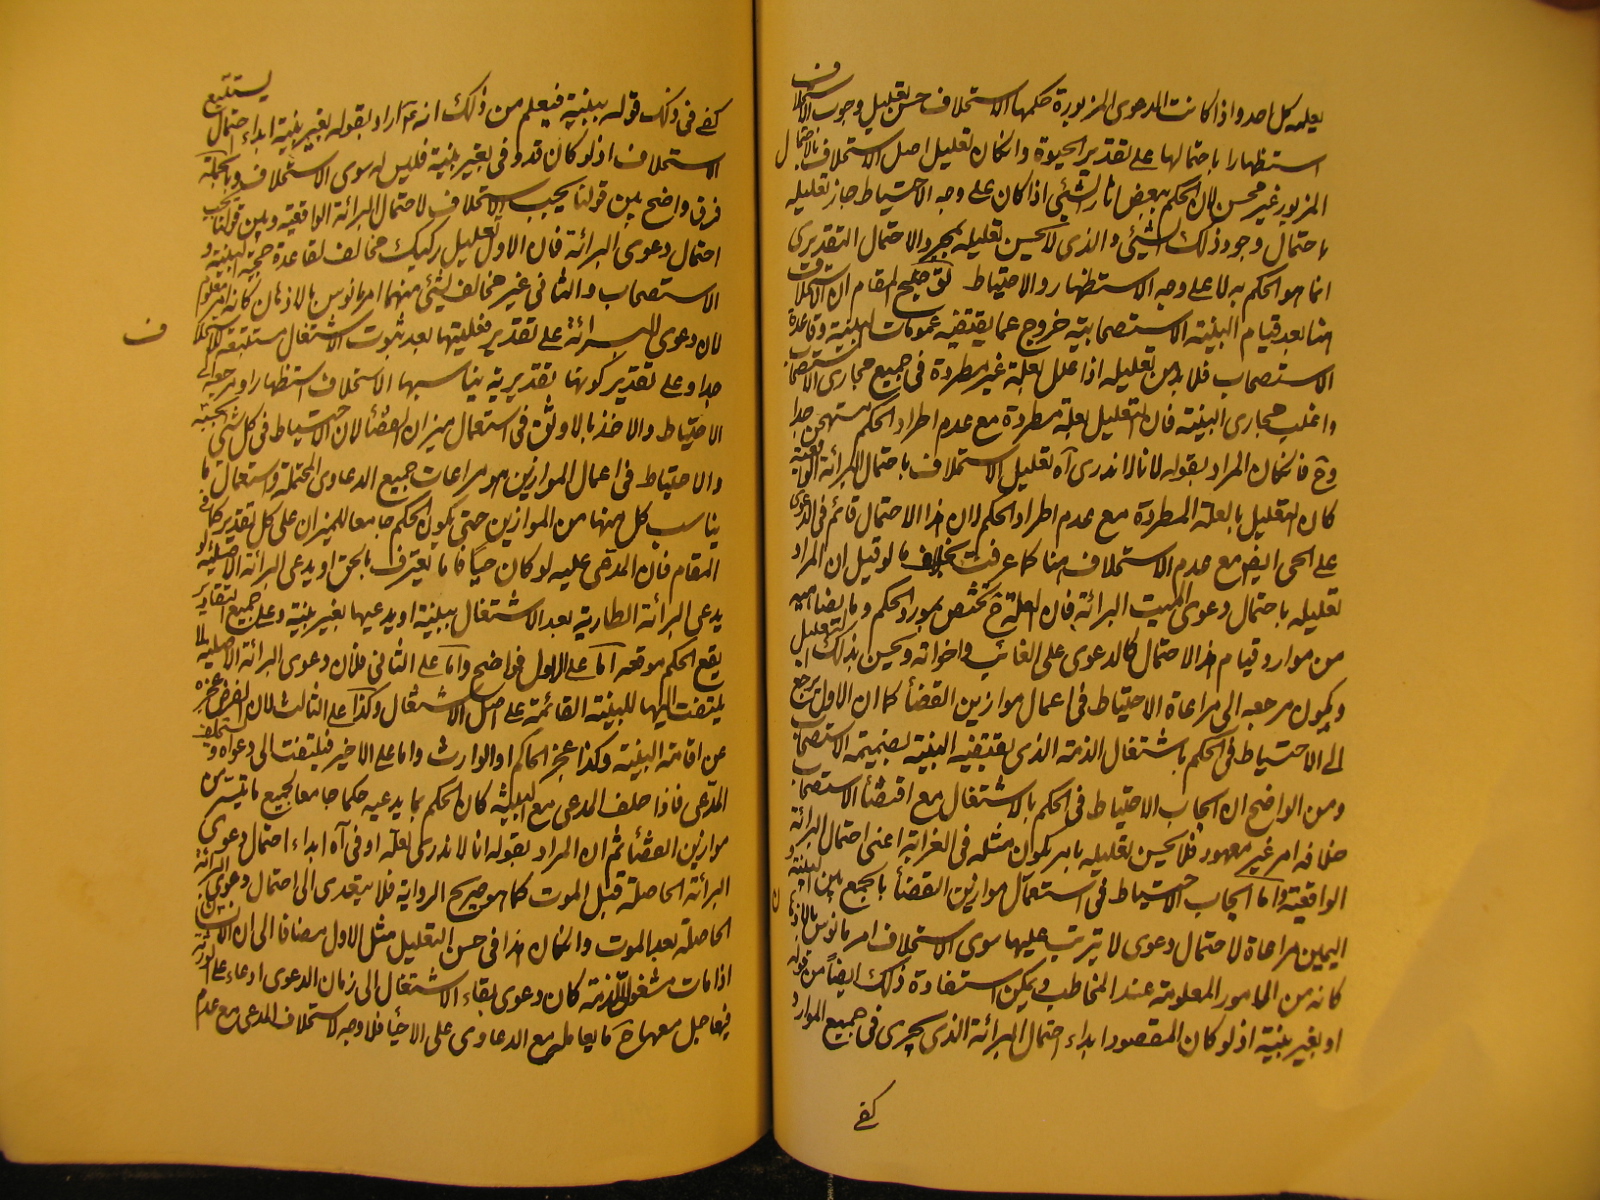 يعلمه كل احد واذا كانت الدعوى المزبورة حكمها الاستحلاف حسن تعليل وجوب الاستحلاف
استظهارا باحتمالها على تقدير الحيوة وان كان تعليل اصل الاستحلاف بالاحتمال
المزبور غير محسن لان الحكم ببعض اثار الشئ اذا كان على وجه الاحتياط جاز تعليله
باحتمال وجود ذلك الشئ والذى لا يحسن تعليله بمجرد الاحتمال التقديرى
انما هو الحكم به لا على وجه الاستظهار والاحتياط توضيح المقام ان الاستحلاف
هنا بعد قيام البينة الاستصحابية خروج عما يقتضيه عمومات البينة وقاعدة
الاستصحاب فلا بد من تعليله اذا علل بعلة غير مطردة فى جميع مجارى الاستصحاب
واغلب مجارى البينة فان التعليل بعلة مطردة مع عدم اطراد الحكم مستهجن جدا
وح فان كان المراد بقوله لانا لا ندرى آه تعليل الاستحلاف باحتمال البرائة الواقعية
كان التعليل بالعلة المطردة مع عدم اطراد الحكم لان هذا الاحتمال قائم فى الدعوى
على الحى ايضا مع عدم الاستحلاف هنا كما عرفت بخلاف ما لو قيل ان المراد
تعليله باحتمال دعوى الميت البرائة فان العلة ح تختص بمورد الحكم وما يضاهيه
من موارد قيام هذا الاحتمال كالدعوى على الغائب واخواته ويحسن بذلك التعليل
ويكون مرجعه الى مراعاة الاحتياط فى اعمال موازين القضأ كما ان الاول يرجع
الى الاحتياط فى الحكم باشتغال الذمة الذى يقتضيه البينة بضميمة الاستصحاب
ومن الواضح ان ايجاب الاحتياط فى الحكم بالاشتغال مع اقتضأ الاستصحاب
خلافه امر غير معهود فلا يحسن تعليله بامر يكون مثله فى الغرابة اعنى احتمال البرائة
الواقعية واما ايجاب الاحتياط فى استعمال موازين القضأ بالجمع بين البينة و
اليمين مراعاة لاحتمال دعوى لا يترتب عليها سوى الاستحلاف امر مانوس بالاذهان
كانه من الامور المعلومة عند المخاطب ويمكن استفادة ذلك ايضا من قوله
او بغير بينة اذ لو كان المقصود ابداء احتمال البرائة الذى يجرى فى جميع الموارد
كفى
كفى فى ذلك قوله ببينة فيعلم من ذلك انه ع اراد بقوله بغير بينة ابداء احتمال يستتبع
الاستحلاف اذ لو كان قد وفى بغير بينة فليس له سوى الاستحلاف وبالجملة
فرق واضح بين قولنا يجب الاستحلاف لاحتمال البرائة الواقعية وبين قولنا يجب
احتمال دعوى البرائة فان الاول تعليل ركيك مخالف لقاعدة حجية البينة و
الاستصحاب والثانى غير مخالف لشئ منهما امر مانوس بالاذهان كانه امر معلوم
لان دعوى البرائة على تقدير فعليتها بعد ثبوت الاشتغال مستتبعة للاستحلاف
جدا وعلى تقدير كونها تقديرية يناسبها الاستحلاف استظهارا ومرجعه الى
الاحتياط والاخذ بالاوثق فى استعمال ميزان القضأ لان الاحتياط فى كل شئ بحسبه
والاحتياط فى اعمال الموازين هو مراعات جميع الدعاوى المحتملة واستعمال ما
يناسب كل منها من الموازين حتى يكون الحكم جامعا للميزان على كل تقدير كما فى
المقام فان المدعى عليه لو كان حيا فاما يعترف بالحق او يدعى البرائة الاصلية او
يدعى البرائة الطارية بعد الاشتغال ببينة او يدعيها بغير بينة وعلى جميع التقادير
يقع الحكم موقعه اما على الاول فواضح واما على الثانى فلان دعوى البرائة الاصلية لا
يلتفت اليها للبينة القائمة على اصل الاشتغال وكذا على الثالث لان الفرض عجزه
عن اقامة البينة وكذا عجز الحاكم او الوارث واما على الاخير فيلتفت الى دعواه ويستحلف
المدعى فاذا حلف المدعى مع البينة كان الحكم بما يدعيه حكما جامعا لجميع ما تيسر من
موازين القضأ ثم ان المراد بقوله انا لا ندرى لعله اوفى آه ابداء احتمال دعوى
البرائة الحاصلة قبل الموت كما هو صريح الرواية فلا يتعدى الى احتمال دعوى البرائة
الحاصلة بعد الموت وان كان هذا فى حسن التعليل مثل الاول مضافا الى ان الانسان
اذا مات مشغول الذمة كان دعوى بقاء الاشتغال الى زمان الدعوى ادعاء على الورثة
فيعامل معها ح ما يعامل مع الدعاوى على الاحيأ فلا وجه لاستحلاف المدعى مع عدم